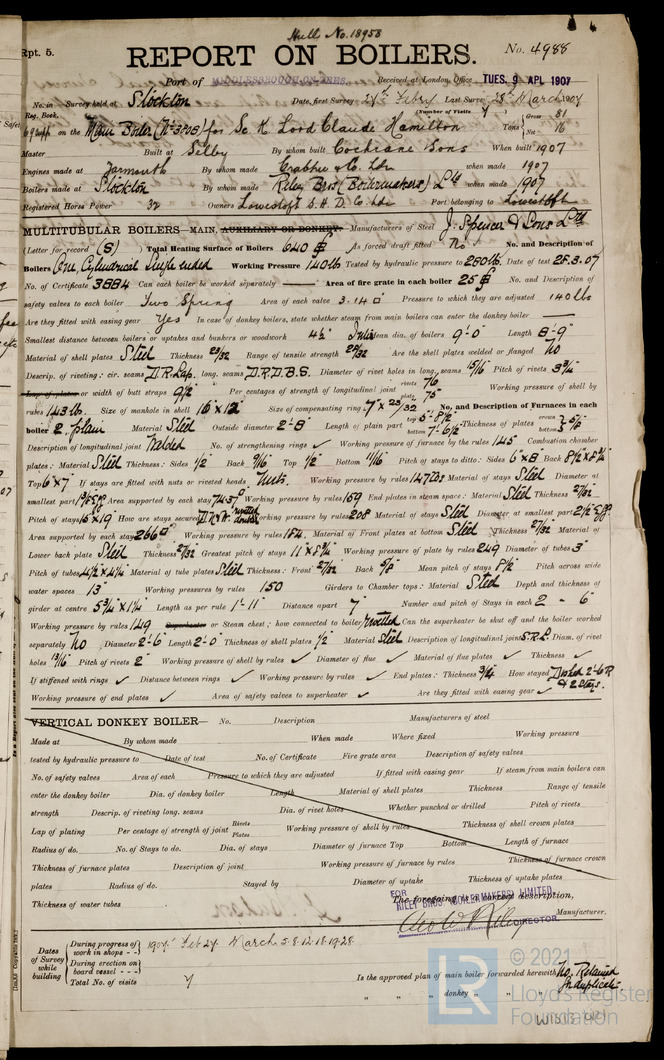 Hull No. 18958
Rpt. 5.
REPORT ON BOILERS.
No. 4988
Port of MIDDLESBROUGH-ON-TEES.
Received at London Office TUES. 9 APL 1907
No. in Survey held at Stockton Date, first Survey 27th Febry Last Survey 28th March 1907
Reg. Book.
(Number of Visits 7
69 supp on the Main Boiler (No 3708) for Sc K Lord Claude Hamilton Tons Gross 81
Net 16
Master Built at Selby By whom built Cochrane & Sons When built 1907
Engines made at Yarmouth By whom made Crabtree & Co. Ldn when made 1907
Boilers made at Stockton By whom made Riley Bros (Boilermakers) Ltd when made 1907
Registered Horse Power 32 Owners Lowestoft S. H. D. Co. Ldn Port belonging to Lowestoft
MULTITUBULAR BOILERS—MAIN, AUXILIARY OR DONKEY.— Manufacturers of Steel J. Spencer & Sons Ltd
(Letter for record (S) Total Heating Surface of Boilers 640 Is forced draft fitted No No. and Description of
Boilers One, Cylindrical Single ended Working Pressure 140 lb Tested by hydraulic pressure to 280 lb. Date of test 28.3.07
No. of Certificate 3884 Can each boiler be worked separately — Area of fire grate in each boiler 25 No. and Description of
safety valves to each boiler Two Spring Area of each valve 3.14 □" Pressure to which they are adjusted 140 lbs
Are they fitted with easing gear Yes In case of donkey boilers, state whether steam from main boilers can enter the donkey boiler —
Smallest distance between boilers or uptakes and bunkers or woodwork 4½" Mean dia. of boilers 9'-0" Length 8'-9"
Material of shell plates Steel Thickness 23/32 Range of tensile strength 28/32 Are the shell plates welded or flanged No
Descrip. of riveting: cir. seams D.R. Lap. long. seams D.R.D.B.S. Diameter of rivet holes in long. seams 15/16 Pitch of rivets 3¾"
Lap of plates or width of butt straps 9½ Per centages of strength of longitudinal joint rivets 76 plate 75 Working pressure of shell by
rules 143 lb. Size of manhole in shell 16" x 12" Size of compensating ring 7" x 23/32 No. and Description of Furnaces in each
boiler 2. plain Material Steel Outside diameter 2'-8" Length of plain part top 5'-8½" bottom 7'-6½" Thickness of plates crown bottom 5/8"
Description of longitudinal joint Welded No. of strengthening rings ✓ Working pressure of furnace by the rules 145 Combustion chamber
plates: Material Steel Thickness: Sides ½ Back 9/16 Top ½ Bottom 11/16 Pitch of stays to ditto: Sides 6" x 8" Back 8½" x 8¾"
Top 6" x 7" If stays are fitted with nuts or riveted heads Nuts. Working pressure by rules 147 lbs Material of stays Steel Diameter at
smallest part Area supported by each stay 74.37 Working pressure by rules 159 End plates in steam space: Material Steel Thickness 27/32
Pitch of stays 15" x 19" How are stays secured Working pressure by rules 208 Material of stays Steel Diameter at smallest part
Area supported by each stay 266 □" Working pressure by rules 184. Material of Front plates at bottom Steel Thickness 27/32 Material of
Lower back plate Steel Thickness 27/32 Greatest pitch of stays 11" x 8¾" Working pressure of plate by rules 249 Diameter of tubes 3"
Pitch of tubes 4½" x 4¼" Material of tube plates Steel Thickness: Front 27/32 Back 5/8 Mean pitch of stays 8½" Pitch across wide
water spaces 13" Working pressures by rules 150 Girders to Chamber tops: Material Steel Depth and thickness of
girder at centre 5¾" x 1¼" Length as per rule 1'-11" Distance apart 7" Number and pitch of Stays in each 2 - 6"
Working pressure by rules 149 Superheater or Steam chest; how connected to boiler riveted Can the superheater be shut off and the boiler worked
separately No Diameter 2'-6" Length 2'-0" Thickness of shell plates ½ Material Steel Description of longitudinal joint S.R.L. Diam. of rivet
holes 13/16 Pitch of rivets 2" Working pressure of shell by rules ✓ Diameter of flue ✓ Material of flue plates ✓ Thickness ✓
If stiffened with rings ✓ Distance between rings ✓ Working pressure by rules ✓ End plates: Thickness ¾ How stayed Dished 2'-6 R
& 2 Stays.
Working pressure of end plates ✓ Area of safety valves to superheater ✓ Are they fitted with easing gear ✓
VERTICAL DONKEY BOILER— No. Description Manufacturers of steel
Made at By whom made When made Where fixed Working pressure
tested by hydraulic pressure to Date of test No. of Certificate Fire grate area Description of safety valves
No. of safety valves Area of each Pressure to which they are adjusted If fitted with easing gear If steam from main boilers can
enter the donkey boiler Dia. of donkey boiler Length Material of shell plates Thickness Range of tensile
strength Descrip. of riveting long. seams Dia. of rivet holes Whether punched or drilled Pitch of rivets
Lap of plating Per centage of strength of joint Rivets Plates Working pressure of shell by rules Thickness of shell crown plates
Radius of do. No. of Stays to do. Dia. of stays Diameter of furnace Top Bottom Length of furnace
Thickness of furnace plates Description of joint Working pressure of furnace by rules Thickness of furnace crown
plates Radius of do. Stayed by Diameter of uptake Thickness of uptake plates
Thickness of water tubes
The foregoing is a correct description,
FOR RILEY BROS. (BOILERMAKERS) LIMITED,
Geo W Riley DIRECTOR Manufacturer.
Dates of Survey while building During progress of work in shops - - 1907 Feb 27 March 5.8.12.18.19.28
During erection on board vessel - - -
Total No. of visits 7
Is the approved plan of main boiler forwarded herewith No. Retained
In duplicate.
" " " donkey " " "
© 2021
LR
Lloyd's Register
Foundation